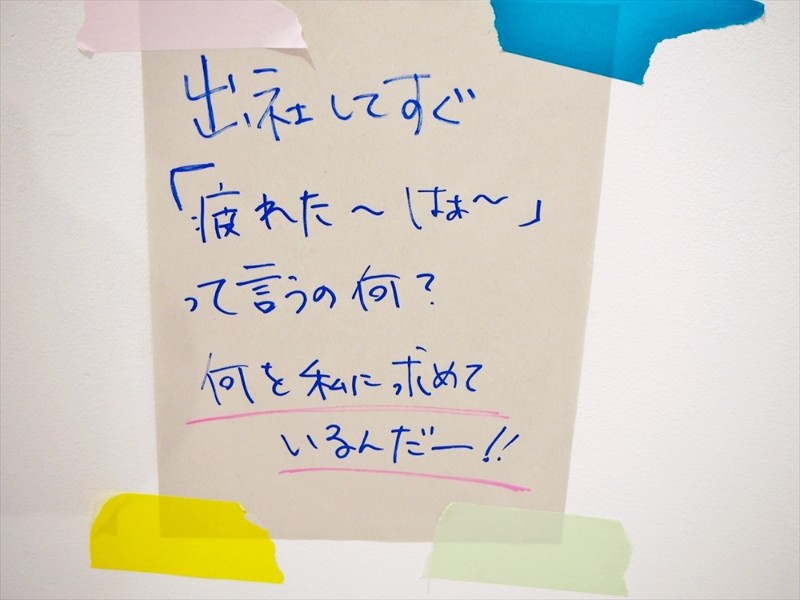 出社してすぐ
「疲れた〜はぁ〜」
って言うの何?
何を私に求めて
いるんだー!!